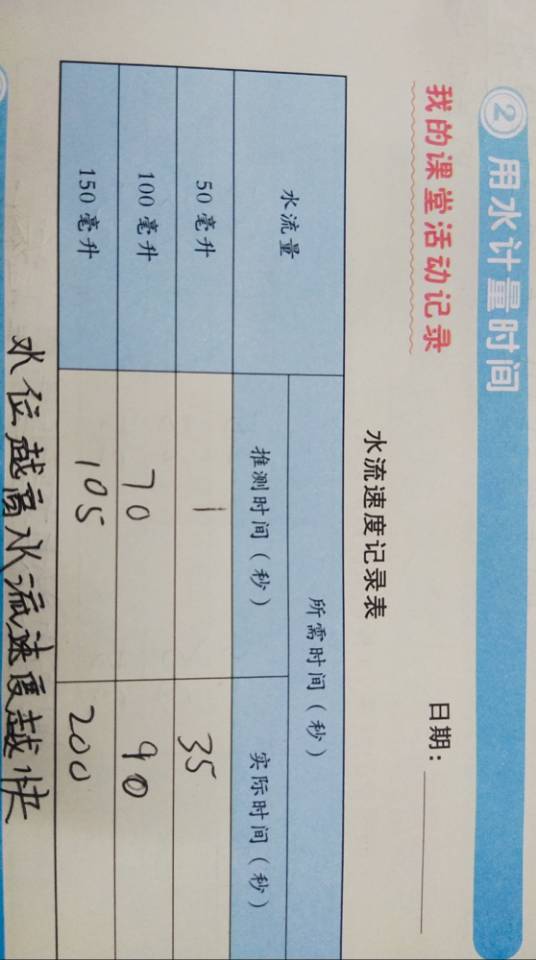 ② 用水计量时间
我的课堂活动记录
日期：
水流速度记录表
水流量 所需时间（秒）
推测时间（秒） 实际时间（秒）
50毫升 1 35
100毫升 70 90
150毫升 105 200
水位越高水流速度越快